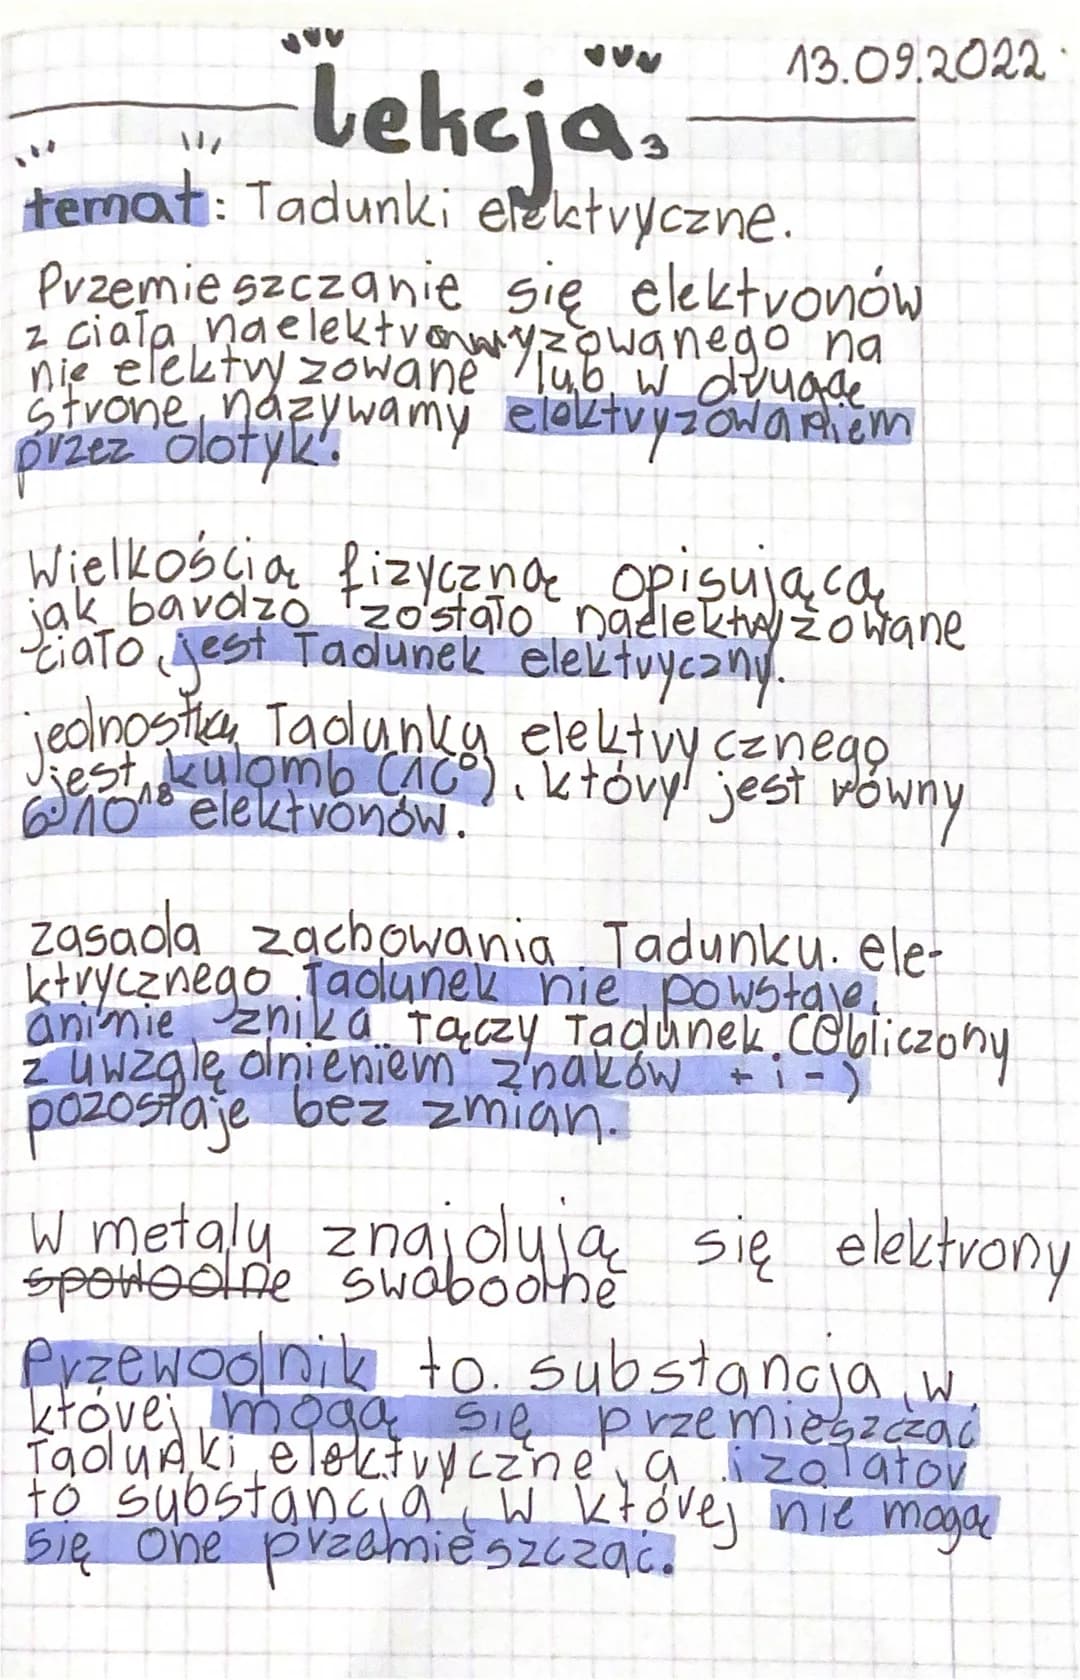 13.09.2022
Lekcja 3
temat: Ładunki elektryczne.
Przemieszczanie się elektronów
z ciała naelektronwyzowanego na
nie elektryzowane lub w drugąę
stronę, nazywamy elektryzowaniem
przez dotyk.
Wielkością fizyczną opisującą,
jak bardzo zostało naelektryzowane
ciało, jest Ładunek elektryczny.
jednostką Ładunku elektrycznego
jest kulomb (1C), który jest równy
6·10¹⁸ elektronów.
zasada zachowania Ładunku. ele-
ktrycznego Ładunek nie powstaje,
ani nie znika Łączy Ładunek. (Obliczony
z uwzględnieniem znaków + i -)
pozostaje bez zmian.
W metalu znajdują się elektrony
swobodne
Przewodnik to. substancja, w
której mogą się przemieszczać
Ładunki elektryczne, a izolator
to substancja, w której nie mogą
się one przemieszczać.